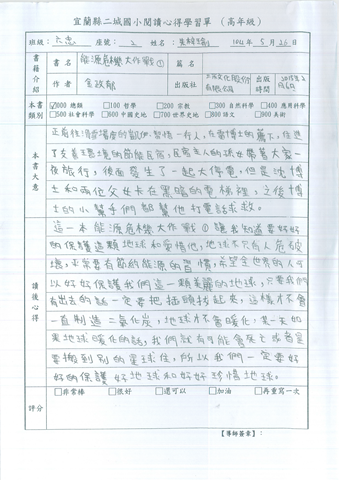 宜蘭縣二城國小閱讀心得學習單（高年級）
班級：六忠 座號：2 姓名： 104年5月26日
書籍介紹
書名 能源危機大作戰①
作者 金政郁 出版社 文化股份有限公司 出版時間 2013年2月
本書類別
☑000 總類 □100 哲學 □200 宗教 □300 自然科學 □400 應用科學
□500 社會科學 □600 中國史地 □700 世界史地 □800 語文 □900 美術
本書大意
正在
去友善環境的節能民宿，民宿主人的孫女帶著大家一
夜旅行，後面發生了一起大停電，但是沈博
士和兩位父女卡在黑暗的電梯裡，之後博
士的小幫手們都幫他打電話求救。
讀後心得
這一本能源危機大作戰①讓我知道要好好
的保護這顆地球和愛惜他，地球不只有人為破
壞，平常要有節約能源的習慣，希望全世界的人可
以好好保護我們這一顆美麗的地球，只要我們
有出去的話一定要把插頭拔起來，這樣才不會
一直制造二氧化炭，地球才不會暖化，某一天如
果地球暖化的話，我們就有可能會死亡或者是
要搬到別的星球住，所以我們一定要好
好的保護好地球和好好珍惜地球。
評分 □非常棒 □很好 □還可以 □加油 □再重寫一次
【導師簽章】：